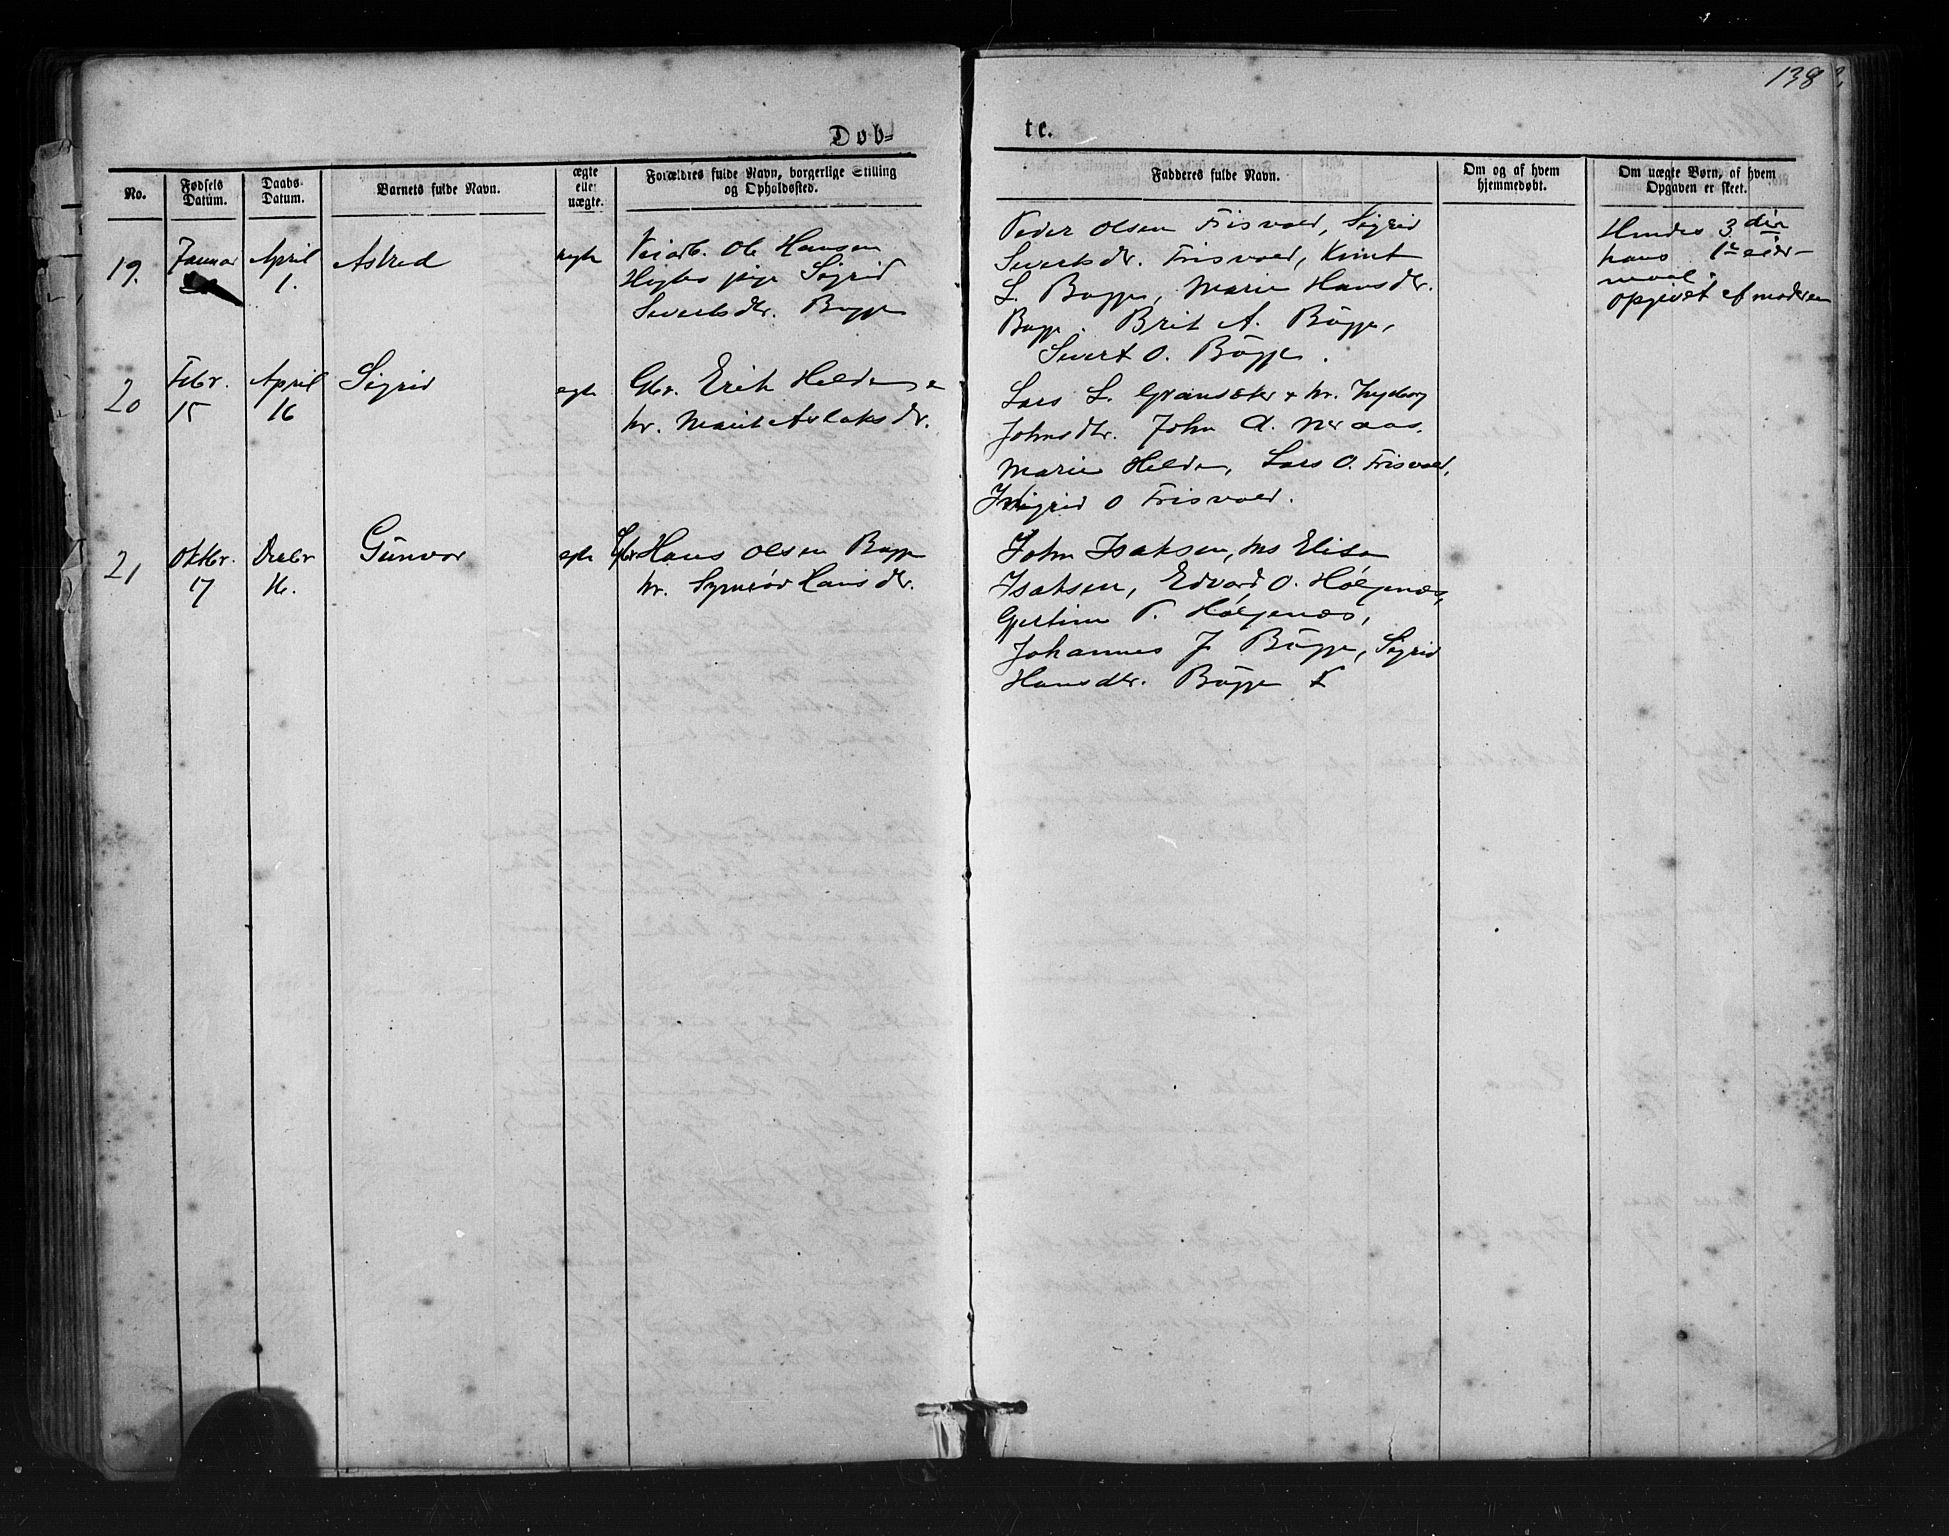 138
Døb-
te.
No.
Fødsels
Datum.
Daabs-
Datum.
Barnets fulde Navn.
ægte
eller
uægte.
Forældres fulde Navn, borgerlige Stilling
og Opholdssted.
Fadderes fulde Navn.
Om og af hvem
hjemmedøbt.
Om uægte Børn, af hvem
Opgaven er skeet.
19.
Januar
April
1.
Astred
uegte
Veiarb. Ole Hansen
pige Sigrid
Sivertsdtr. Bøgge
Peder Olsen Frisvold, Sigrid
Sivertsdr. Frisvold, Knut
L. Bøgge, Marie Hansdr.
Bøgge, Brit A. Bøgge,
Sivert O. Bøgge.
Hendes 3die
hans 1ste leier-
maal.
opgivet af moderen
20
Febr.
15
April
16
Sigrid
egte
Gbr. Erik Helde
hr. Marit Aslaksdr.
Lars L. Gransæter + hr. Ingeborg
Johnsdtr. John A. Neraas.
Marie Helde, Lars O. Frisvold,
Ingrid O Frisvold.
21
Oktbr.
17
Decbr
16.
Gunvor
egte
Gbr Hans Olsen Bøgge
hr. Synnøv Hansdtr.
John Isaksen, Elisa
Isaksen, Edvard O. Hølgenæs,
Gjertine P. Hølgenæs,
Johannes J. Bøgge, Sigrid
Hansdtr. Bøgge